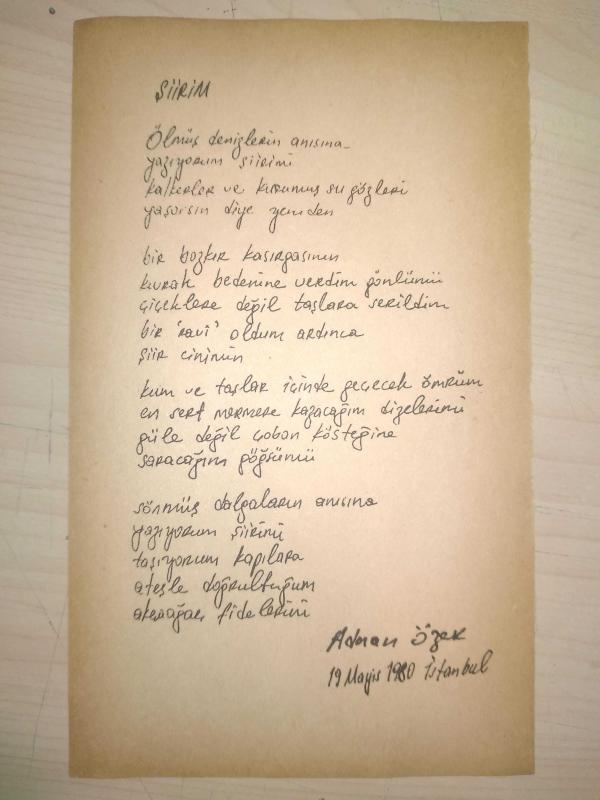 ŞİİRİM
Ölmüş denizlerin anısına
yazıyorum şiirimi
kalkerler ve kurumuş su gözleri
yaşarsın diye yeniden
bir bozkır kasırgasının
kıvrak bedenine verdim gönlümü
çiçeklere değil taşlara serildim
bir 'ravi' oldum ardınca
şiir cininin
kum ve taşlar içinde geçecek ömrüm
en sert mermere kazacağım dizelerimi
güle değil çoban kösteğine
saracağım göğsümü
sönmüş dalgaların anısına
yazıyorum şiirimi
taşıyorum kapılara
ateşle doğrulttuğum
fidelerini
Adnan Özer
19 Mayis 1980 İstanbul